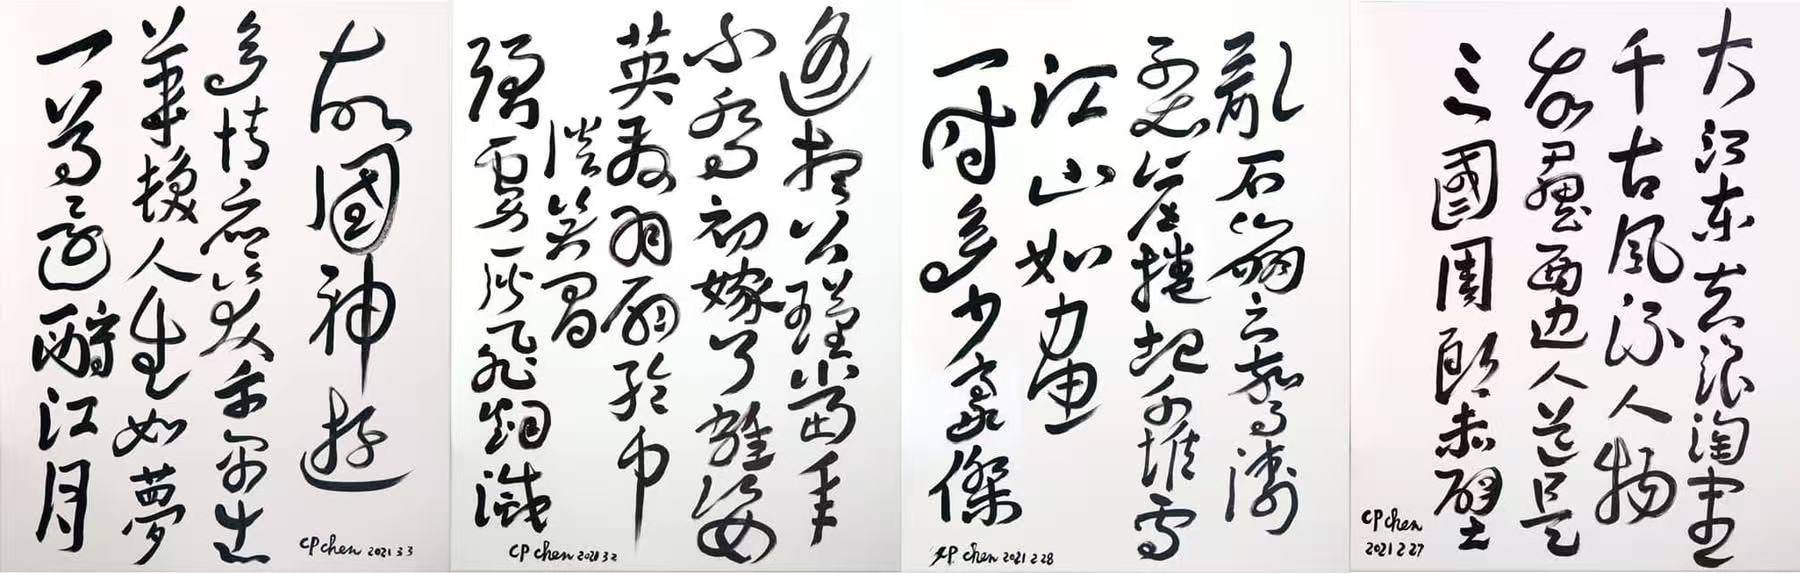 大江东去浪淘尽
千古风流人物
故壘西边人道是
三國周郎赤壁
CP chen
2021 2 27
亂石崩云驚濤
裂岸捲起千堆雪
江山如画
一时多少豪傑
CP chen 2021 2 28
遥想公瑾當年
小乔初嫁了雄姿
英发羽扇纶巾
談笑間
强虏一时灰飛烟滅
CP chen 2021 3 2
故國神遊
多情应笑我早生
華髮人生如夢
一尊还酹江月
CP chen 2021 3 3